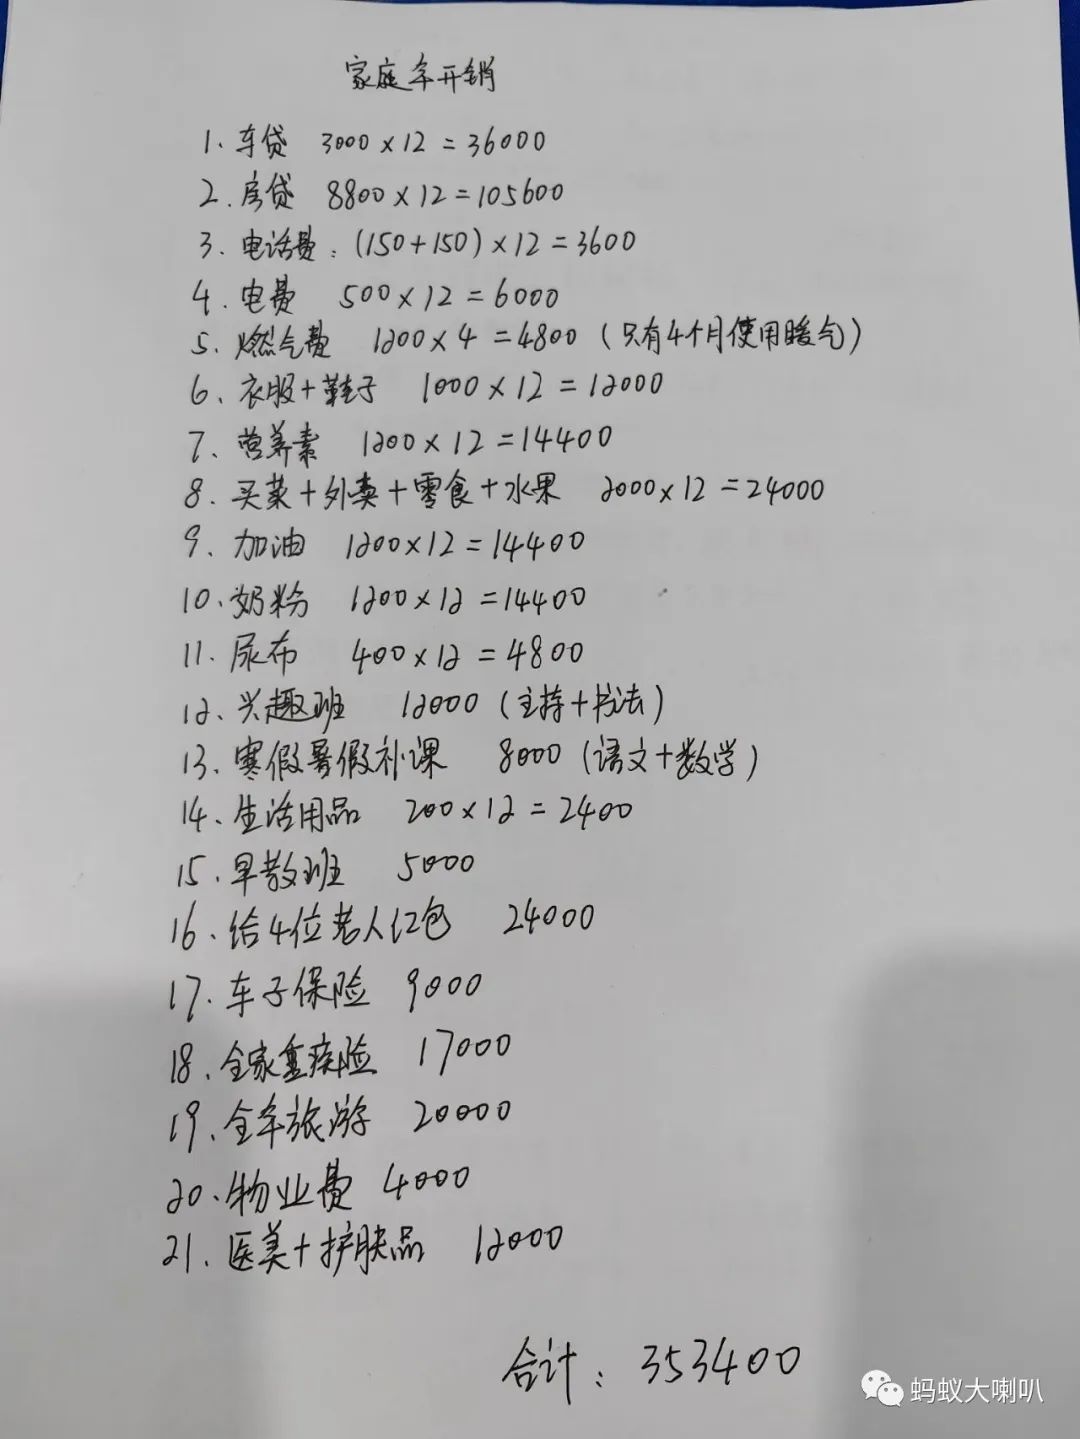 家庭年开销
1. 车贷 3000×12=36000
2. 房贷 8800×12=105600
3. 电话费：(150+150)×12=3600
4. 电费 500×12=6000
5. 燃气费 1200×4=4800（只有4个月使用暖气）
6. 衣服+鞋子 1000×12=12000
7. 营养素 1200×12=14400
8. 买菜+外卖+零食+水果 2000×12=24000
9. 加油 1200×12=14400
10. 奶粉 1200×12=14400
11. 尿布 400×12=4800
12. 兴趣班 12000（主持+书法）
13. 寒假暑假补课 8000（语文+数学）
14. 生活用品 200×12=2400
15. 早教班 5000
16. 给4位老人红包 24000
17. 车子保险 9000
18. 全家重疾险 17000
19. 全年旅游 20000
20. 物业费 4000
21. 医美+护肤品 12000
合计：353400
蚂蚁大喇叭